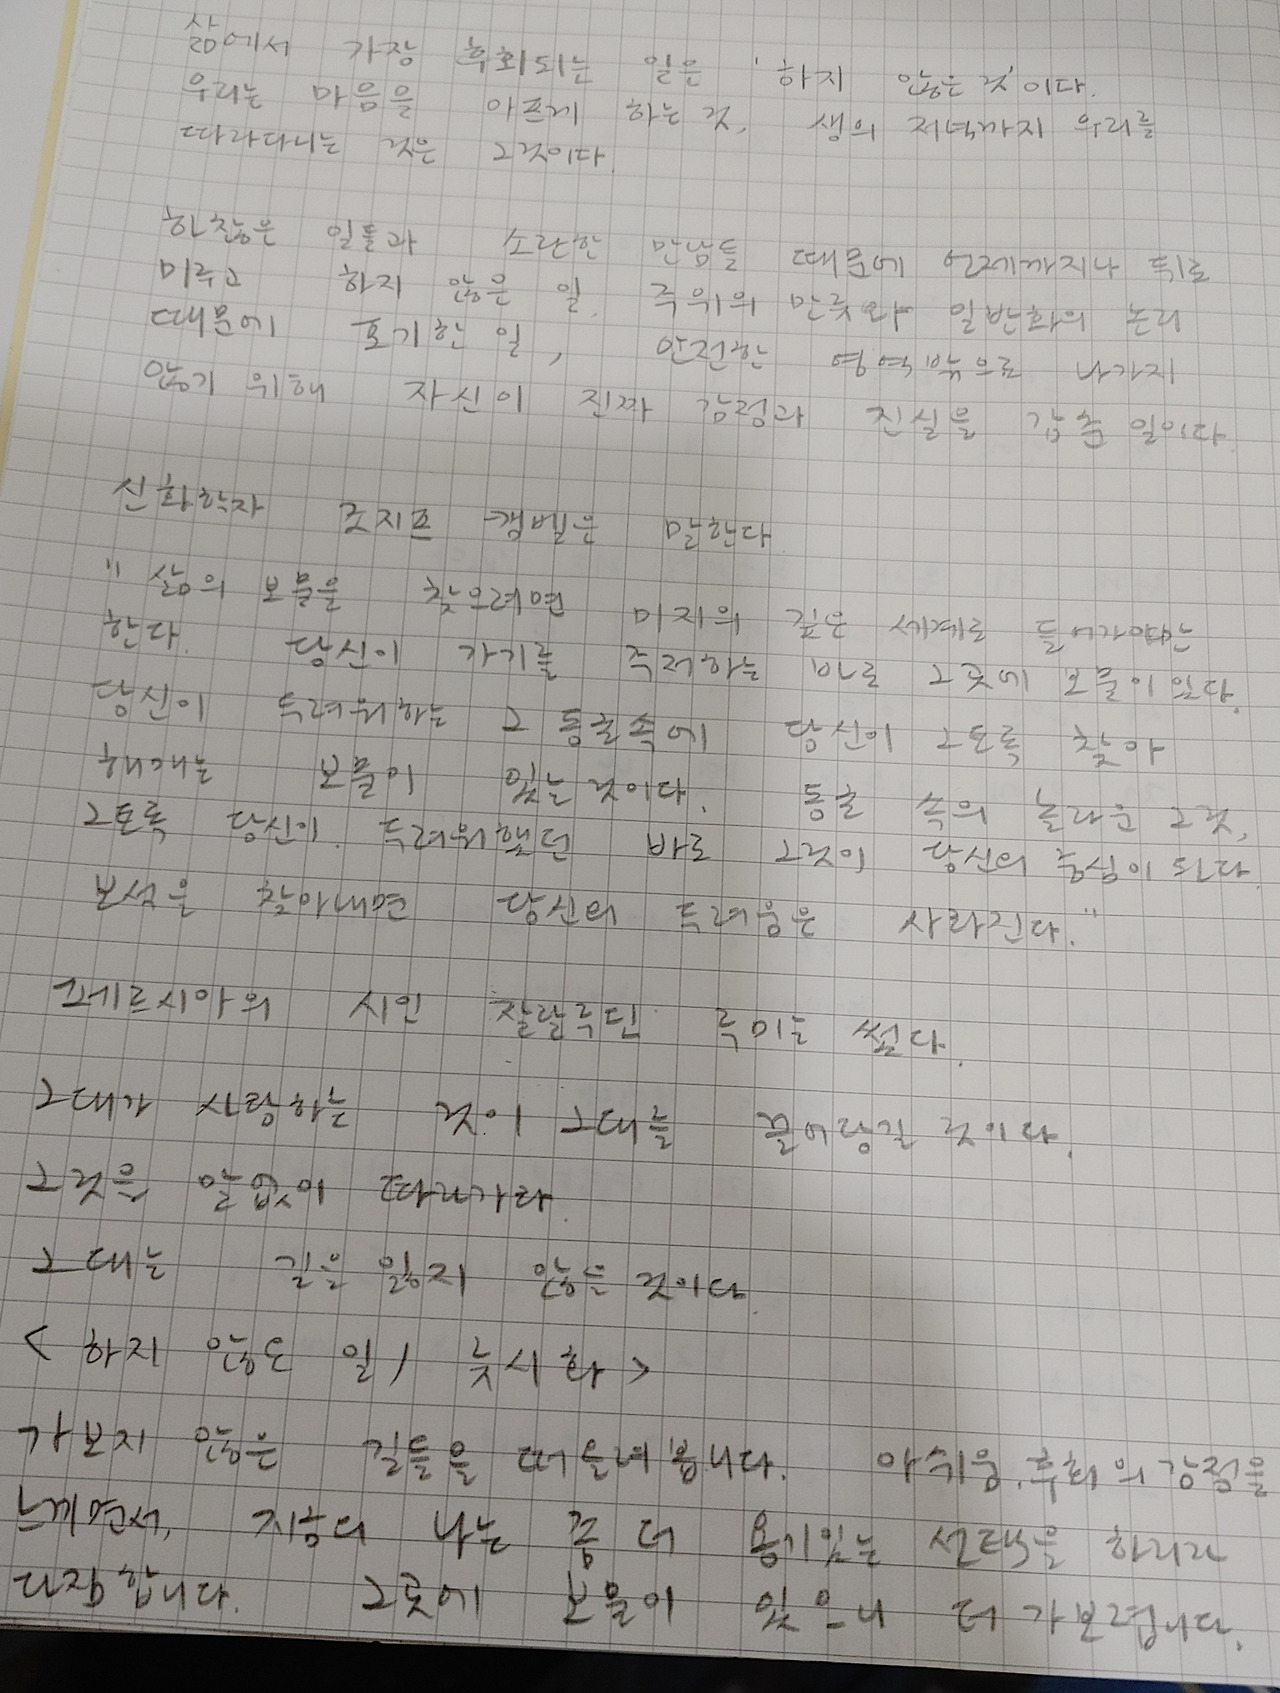 삶에서 가장 후회되는 일은 '하지 않은 것'이다.
우리는 마음을 아프게 하는 것, 생의 저녁까지 우리를
따라다니는 것은 그것이다.
하찮은 일들과 소란한 만남들 때문에 언제까지나 뒤로
미루고 하지 않은 일, 주위의 만류와 일반화의 논리
때문에 포기한 일, 안전한 영역 밖으로 나가지
않기 위해 자신이 진짜 감정과 진실을 감춘 일이다.
신화학자 조지프 캠벨은 말한다.
"삶의 보물을 찾으려면 미지의 깊은 세계로 들어가야만
한다. 당신이 가기를 주저하는 바로 그곳에 보물이 있다.
당신이 두려워하는 그 동굴속에 당신이 그토록 찾아
헤매는 보물이 있는 것이다. 동굴 속의 놀라운 그것,
그토록 당신이 두려워했던 바로 그것이 당신의 중심이 된다.
보석을 찾아내면 당신의 두려움은 사라진다."
페르시아의 시인 잘랄루딘 루미는 썼다.
그대가 사랑하는 것이 그대를 끌어당길 것이다.
그것을 말없이 따라가라.
그대는 길을 잃지 않을 것이다.
< 하지 않은 일 / 류시화 >
가보지 않은 길들을 떠올려 봅니다. 아쉬움, 후회의 감정을
느끼면서, 지금의 나는 좀 더 용기있는 선택을 하리라
다짐합니다. 그곳에 보물이 있으니 더 가보렵니다.